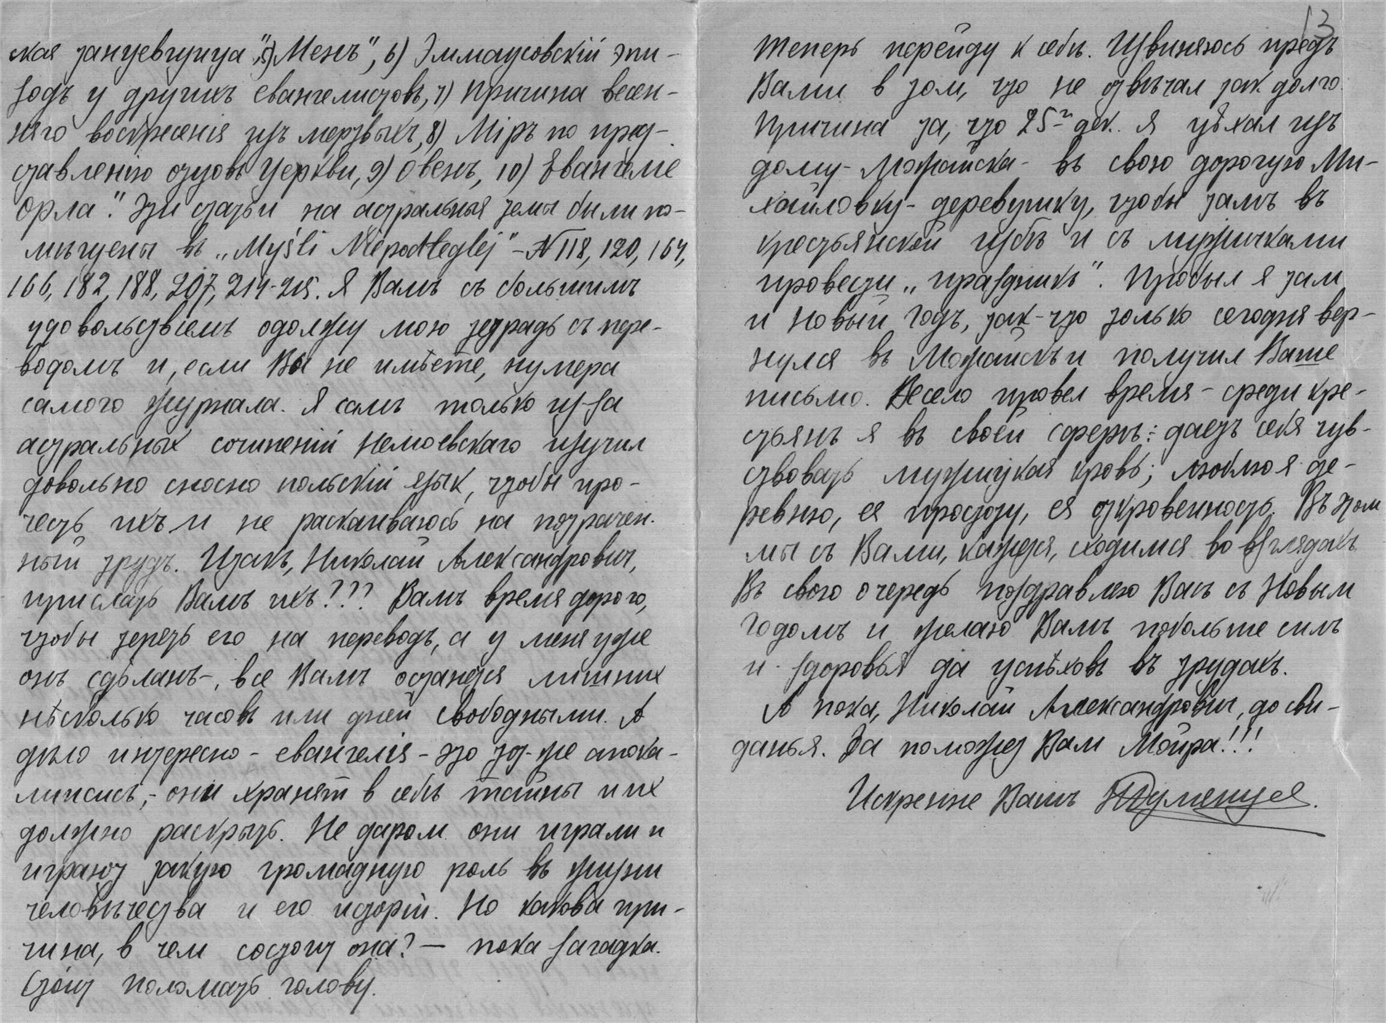 ская танцевщица", 5) Менъ", 6) Эммаусовскій эпи-
зодъ у другихъ евангелистовъ, 7) Причина весен-
няго воскресенія изъ мертвыхъ, 8) Міръ по пред-
ставленію отцовъ Церкви, 9) Овенъ, 10) Евангеліе
Орла". Эти статьи на астральныя темы были по-
мѣщены въ „Myśli Niepodległej" - N 118, 120, 164,
166, 182, 188, 207, 214-215. Я Вамъ съ большимъ
удовольствіемъ одолжу мою тетрадь съ пере-
водомъ и, если Вы не имѣете, нумера
самого журнала. Я самъ только из-за
астральных сочиненій Немоевскаго изучил
довольно сносно польскій язык, чтобы про-
честь ихъ и не раскаиваюсь на потрачен-
ный трудъ. Итакъ, Николай Александрович,
прислать Вамъ ихъ??? Вамъ время дорого,
чтобы терять его на переводъ, а у меня уже
онъ сдѣланъ-, все Вамъ останутся лишних
нѣсколько часовъ или дней свободными. А
дѣло интересно - евангелія - это тот-же апока-
липсисъ,- они хранят в себѣ тайны и их
должно раскрыть. Не даром они играли и
играют такую громадную роль въ жизни
человѣчества и его исторіи. Но какова при-
чина, в чем состоит она? — пока загадка.
Стоит поломать голову.
13
Теперь перейду к себѣ. Извиняюсь предъ
Вами в том, что не отвѣчал так долго.
Причина та, что 25го дек. я уѣхал изъ
дому - Можайска - въ свою дорогую Ми-
хайловку - деревушку, чтобы тамъ въ
крестьянской избѣ и съ мужичками
провести „праздникъ". Пробыл я там
и Новый Годъ, так-что только сегодня вер-
нулся въ Можайскъ и получил Ваше
письмо. Весело провел время - среди кре-
стьянъ я въ своей сферѣ: дает себя чув-
ствовать мужицкая кровь; люблю я де-
ревню, ея простоту, ея откровенность. Въ этом
мы съ Вами, кажется, сходимся во взглядахъ.
Въ свою очередь поздравляю Васъ съ Новым
Годомъ и желаю Вамъ побольше силъ
и здоровья да успѣховъ въ трудахъ.
А пока, Николай Александрович, до сви-
данья. Да поможет Вам Мойра!!!
Искренне Вашъ